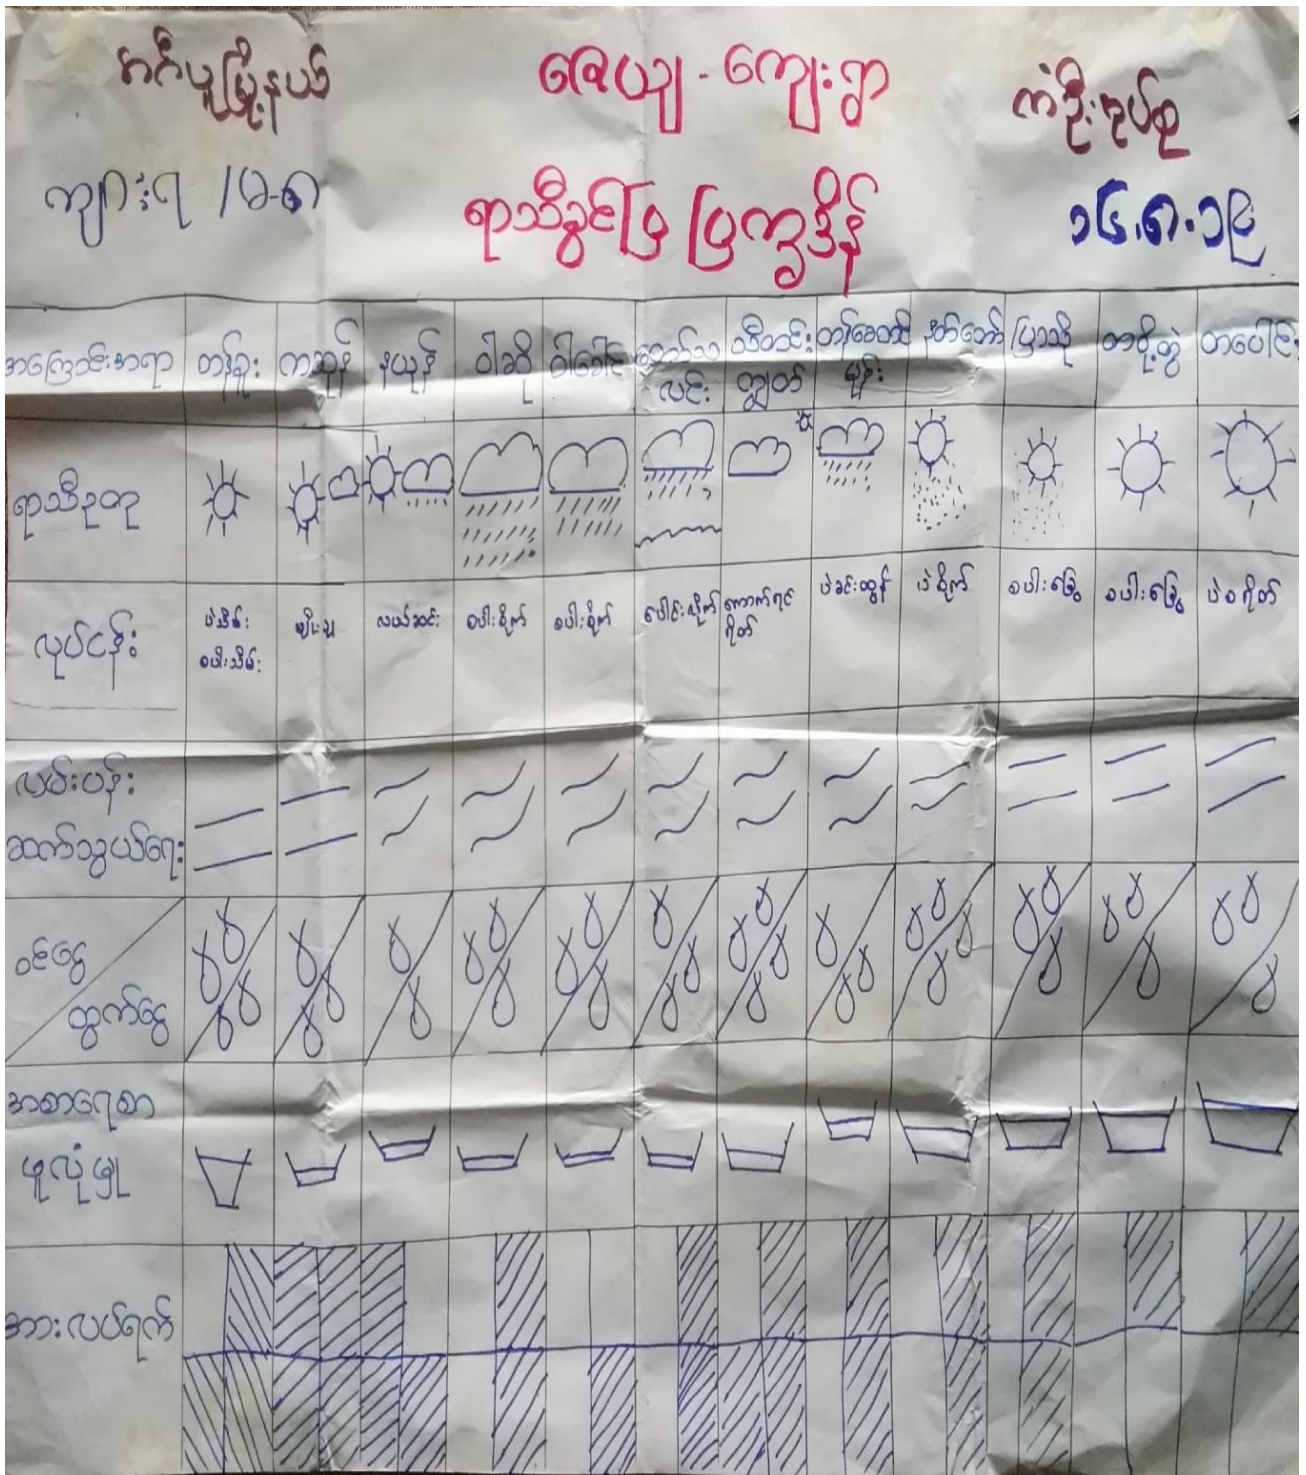 အင်္ဂပူမြို့နယ်
ဇေယျ - ကျေးရွာ
ကဲဦးအုပ်စု
ကျား ၇ / မ - ၈
ရာသီခွင်ပြ ပြက္ခဒိန်
၁၄.၈.၁၉
အကြောင်းအရာ တန်ခူး ကဆုန် နယုန် ဝါဆို ဝါခေါင် တော်သလင်း သီတင်းကျွတ် တန်ဆောင်မုန်း နတ်တော် ပြာသို တပို့တွဲ တပေါင်း
ရာသီဥတု
လုပ်ငန်း ပဲသိမ်း စပါးသိမ်း မျိုးချ လယ်ဆင်း စပါးစိုက် စပါးစိုက် ပေါင်းလိုက် ကောက်ရင်ရိတ် ပဲခင်းထွန် ပဲစိုက် စပါးခြွေ စပါးခြွေ ပဲစရိတ်
လမ်းပန်း
ဆက်သွယ်ရေး
ဝင်ငွေ
ထွက်ငွေ
အစားရေစာ
ဖူလုံမှု
အားလပ်ရက်